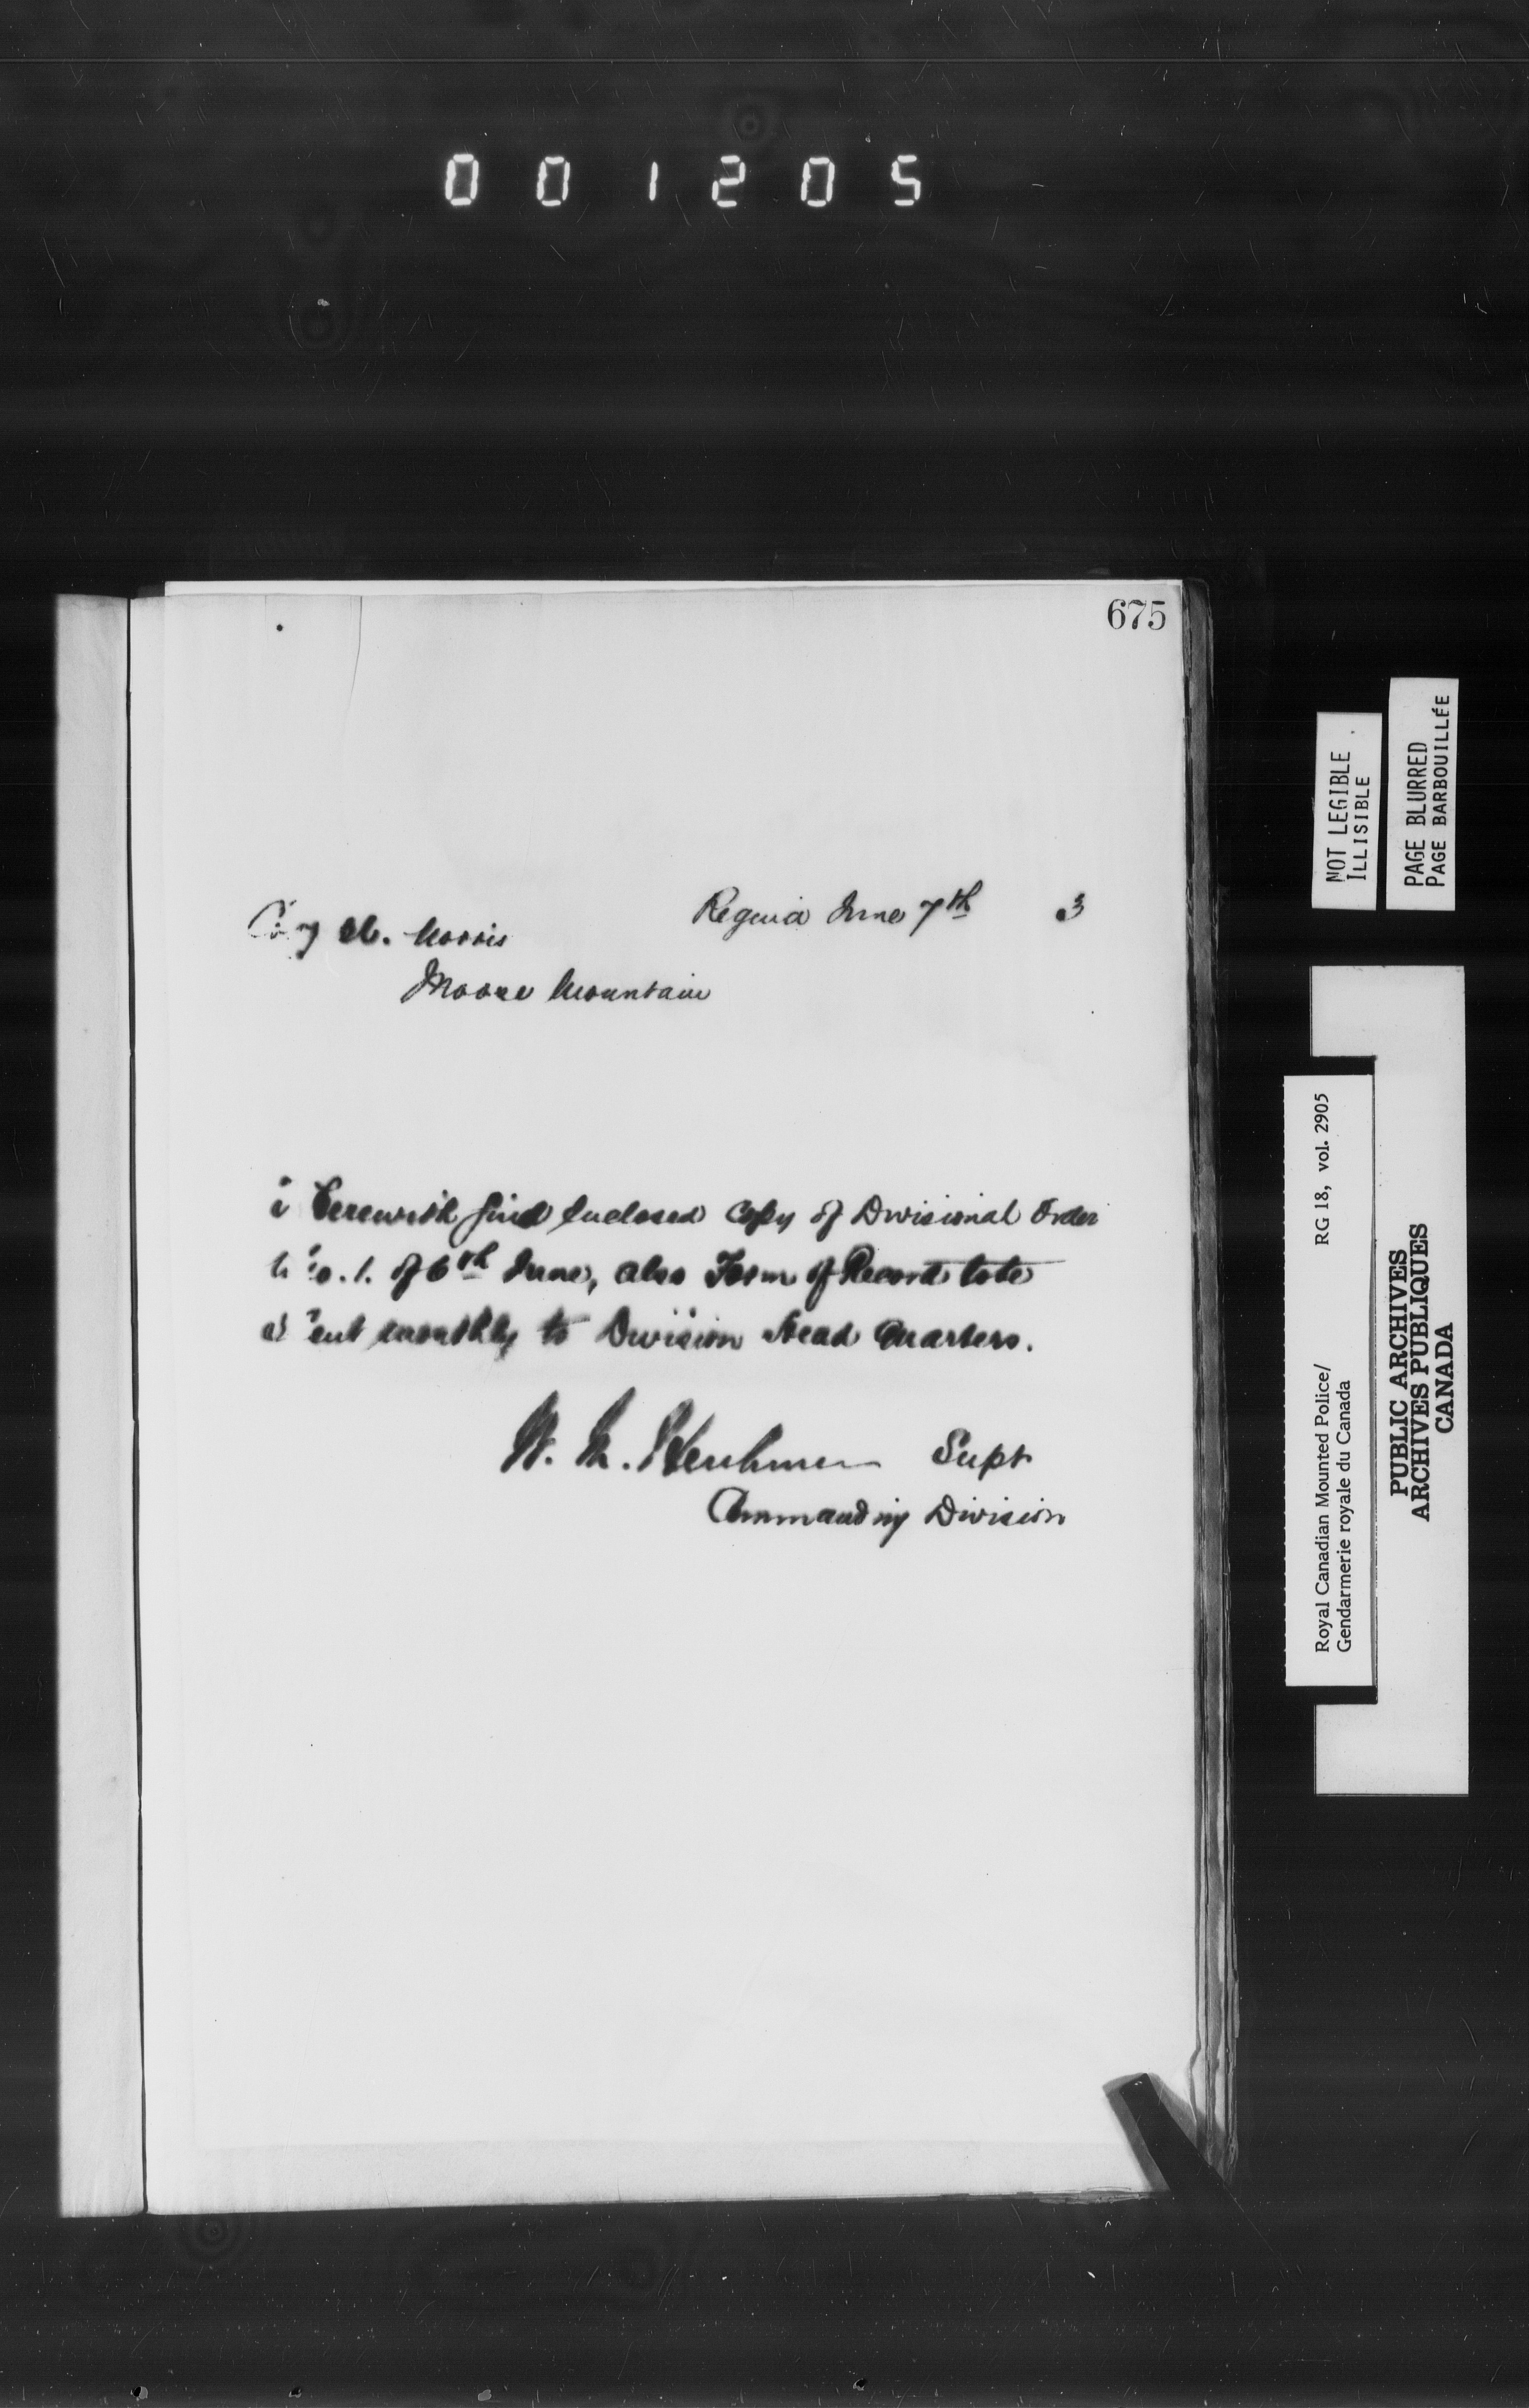 001205
675
Regina June 7th 3
M. Norris
Moose Mountain
herewith find enclosed Copy of Divisional Order
No. 1. of 6th June, also Form of Record to be
sent monthly to Division Head Quarters.
Supt
Commanding Division
NOT LEGIBLE
ILLISIBLE
PAGE BLURRED
PAGE BARBOUILLÉE
Royal Canadian Mounted Police/ RG 18, vol. 2905
Gendarmerie royale du Canada
PUBLIC ARCHIVES
ARCHIVES PUBLIQUES
CANADA